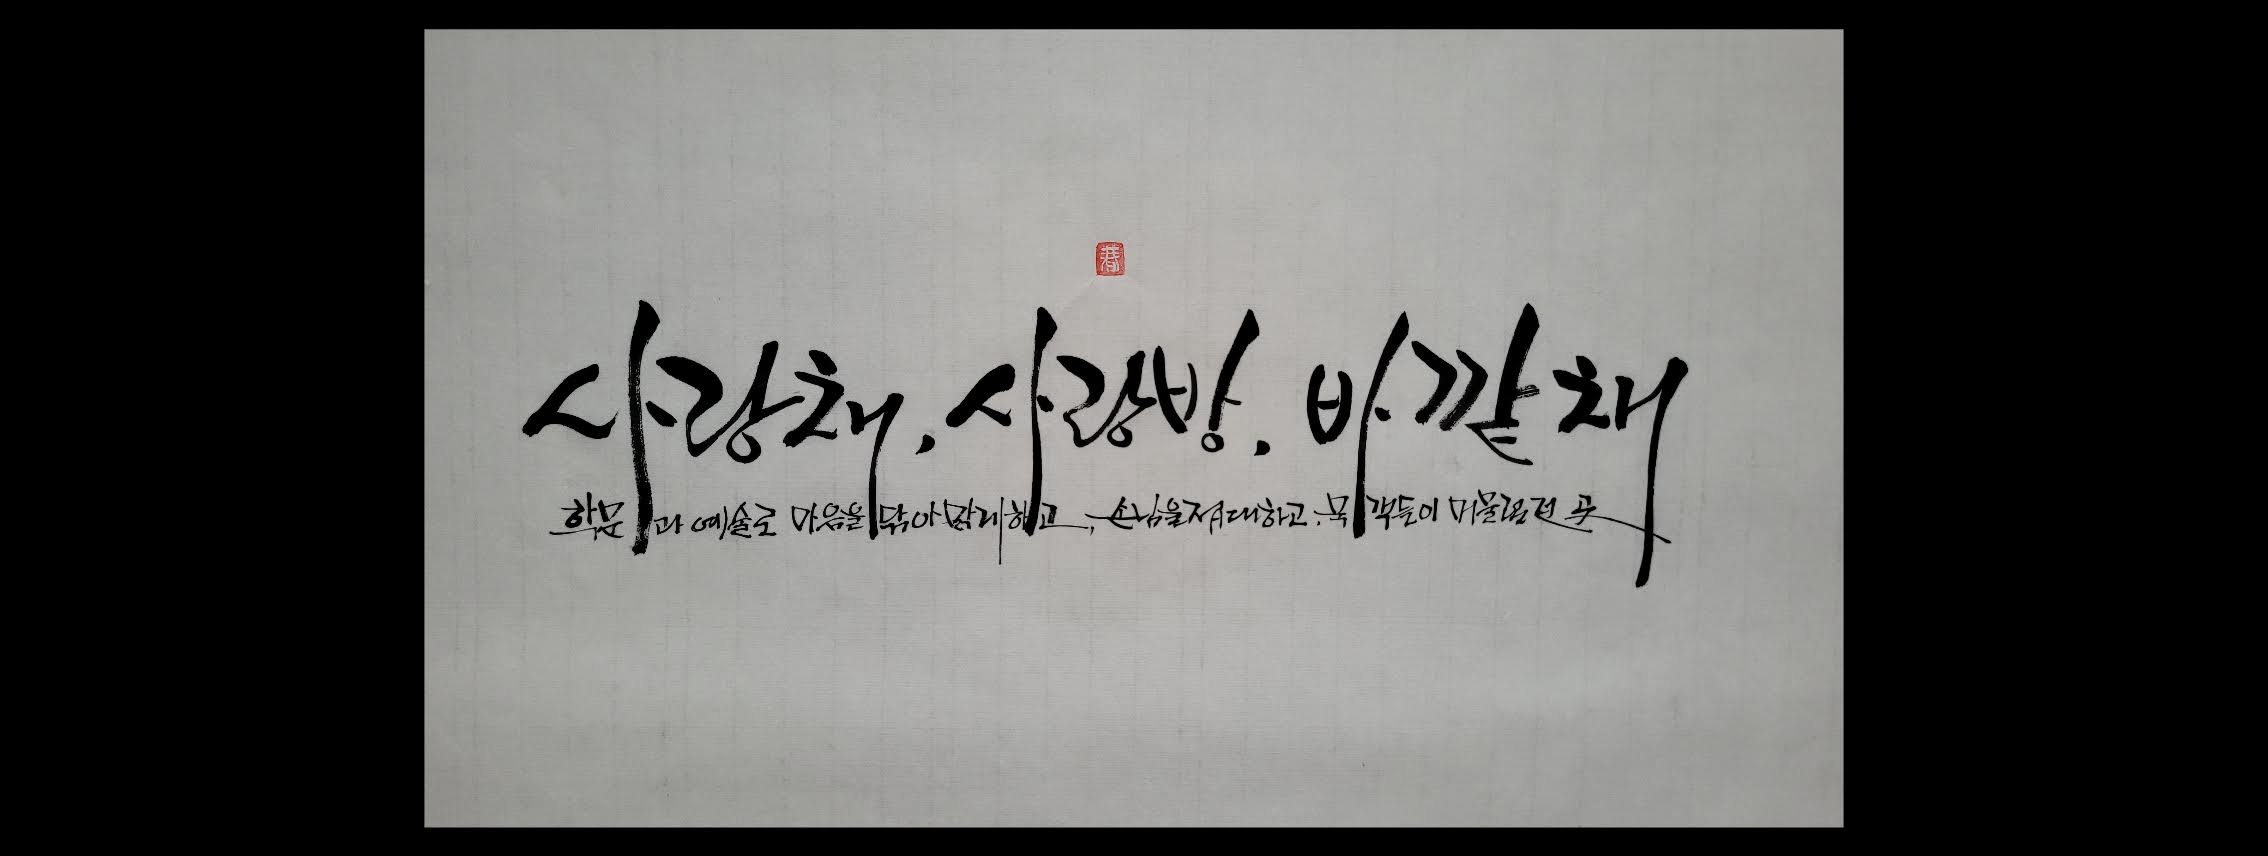 사랑채, 사랑방, 바깥채
학문과 예술로 마음을 닦아 맑게하고, 손님을 접대하고, 묵객들이 머물렀던 곳